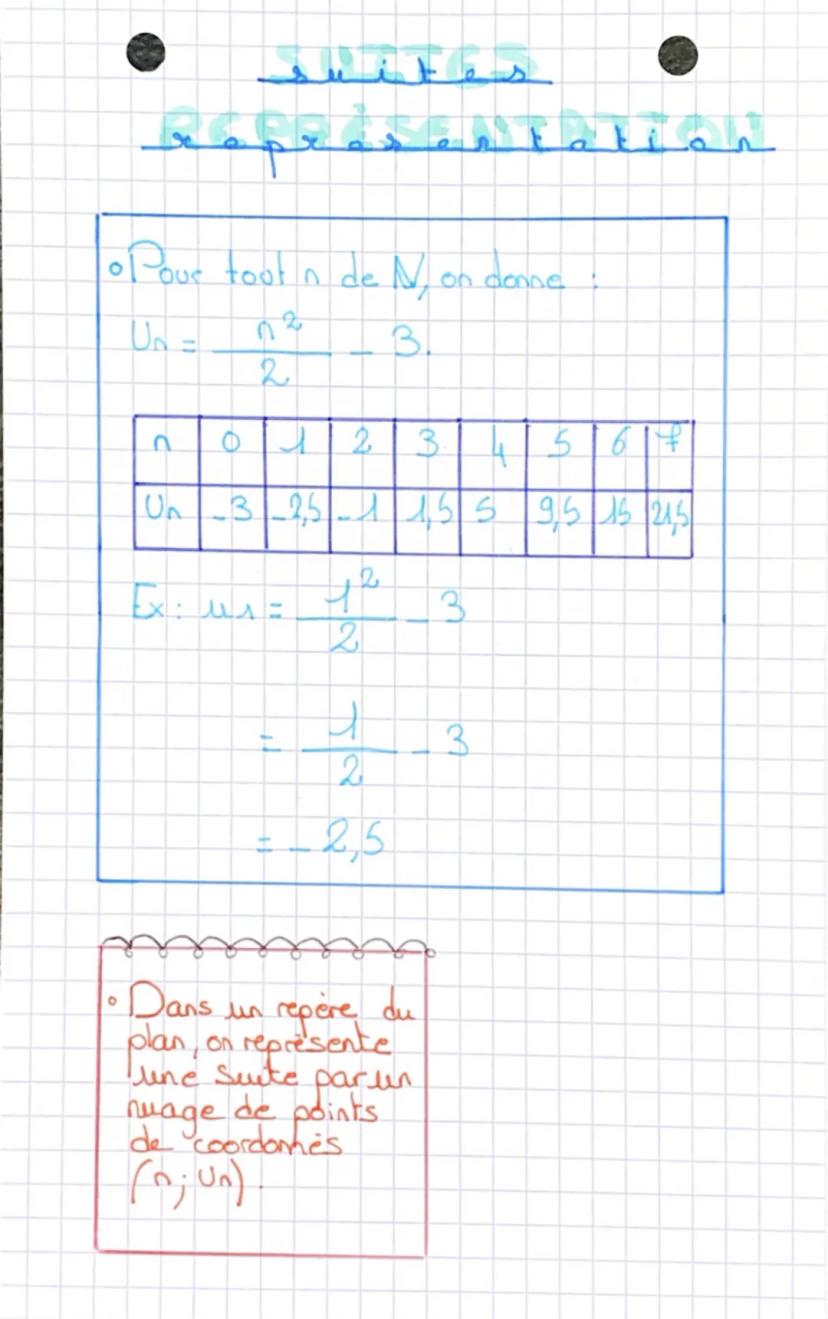 SUITES
suites
REPRÉSENTATION
représentation
Pour tout n de ℕ, on donne :
Un = n²/2 - 3.
n 0 1 2 3 4 5 6 7
Un -3 -2,5 -1 1,5 5 9,5 15 21,5
Ex : u1 = 1²/2 - 3
= 1/2 - 3
= -2,5
Dans un repère du
plan, on représente
une suite par un
nuage de points
de coordonnés
(n; Un).